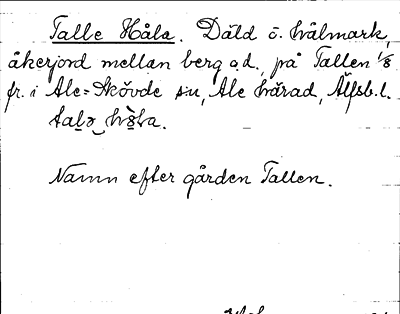 Talle Håla. Däld o. hålmark,
åkerjord mellan berg o.d., på Tallen 1/8
fr. i Ale-Skövde sn, Ale härad, Älfsb. l.
Namn efter gården Tallen.